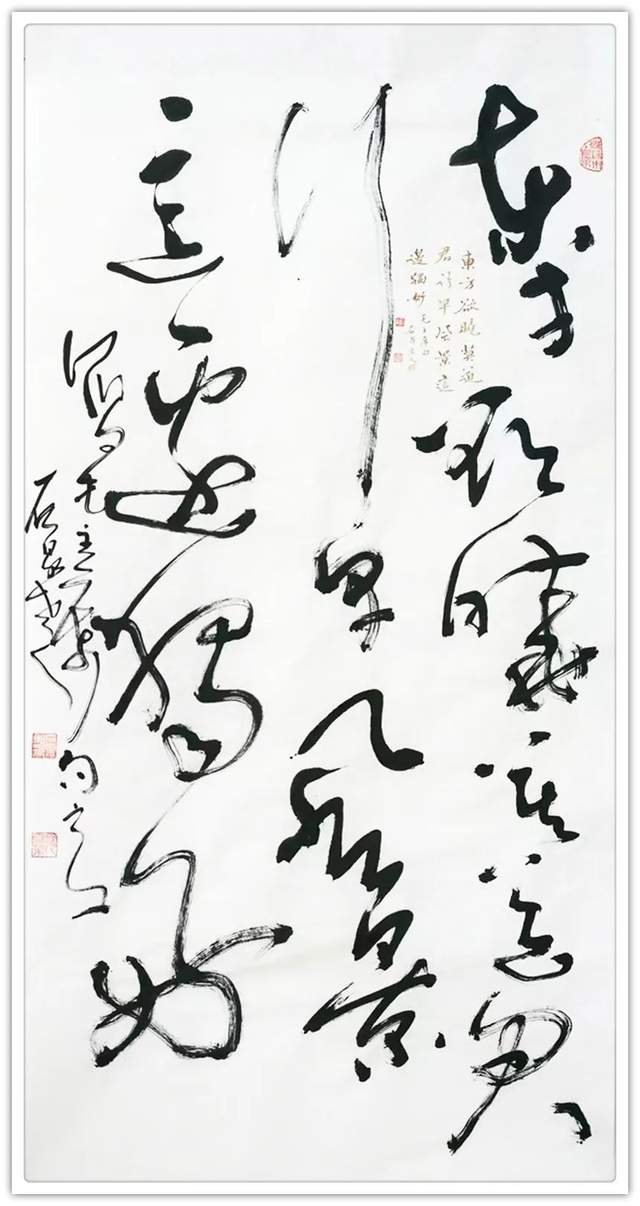 東方欲曉莫道君
行早風景
這邊獨好
寫毛主席
東方欲曉莫道
君行早風景這
邊獨好